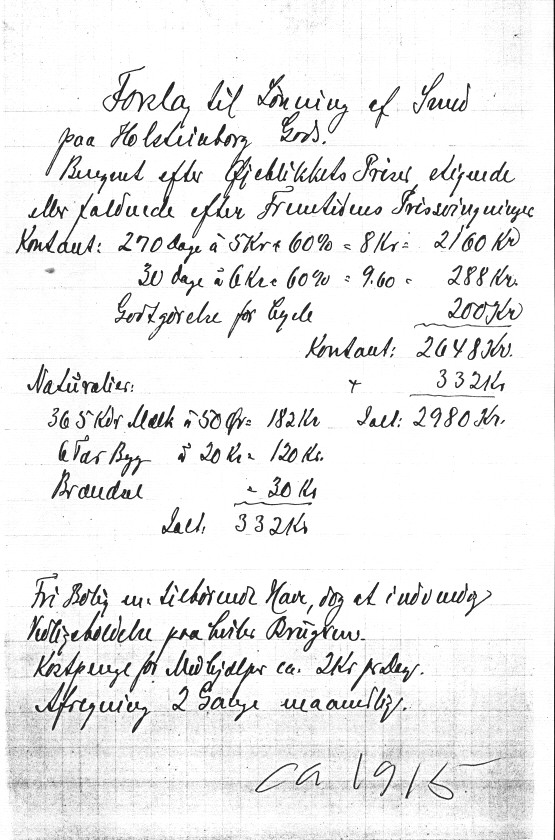 Forslag til Lønning af Smed
paa Holsteinborg Gods.
Beregnet efter Øjeblikkets Priser stigende
eller faldende efter Fremtidens Prissvingninger
Kontant: 270 dage à 5 Kr + 60% = 8 Kr = 2160 Kr
30 dage à 6 Kr + 60% = 9.60 = 288 Kr.
Godtgörelse for Cycle 200 Kr
Kontant: 2648 Kr.
Naturalier: + 332 Kr
365 Kdr Mælk à 50 Øre = 182 Kr Ialt: 2980 Kr.
6 Tdr Byg à 20 Kr = 120 Kr.
Brændsel = 30 Kr
Ialt: 332 Kr
Fri Bolig m. tilhørende Have, dog at indvendig
Vedligeholdelse paa hviler Brugeren.
Kostpenge for Medhjælper ca. 2 Kr pr Dag.
Afregning 2 Gange maanedlig.
ca 1915